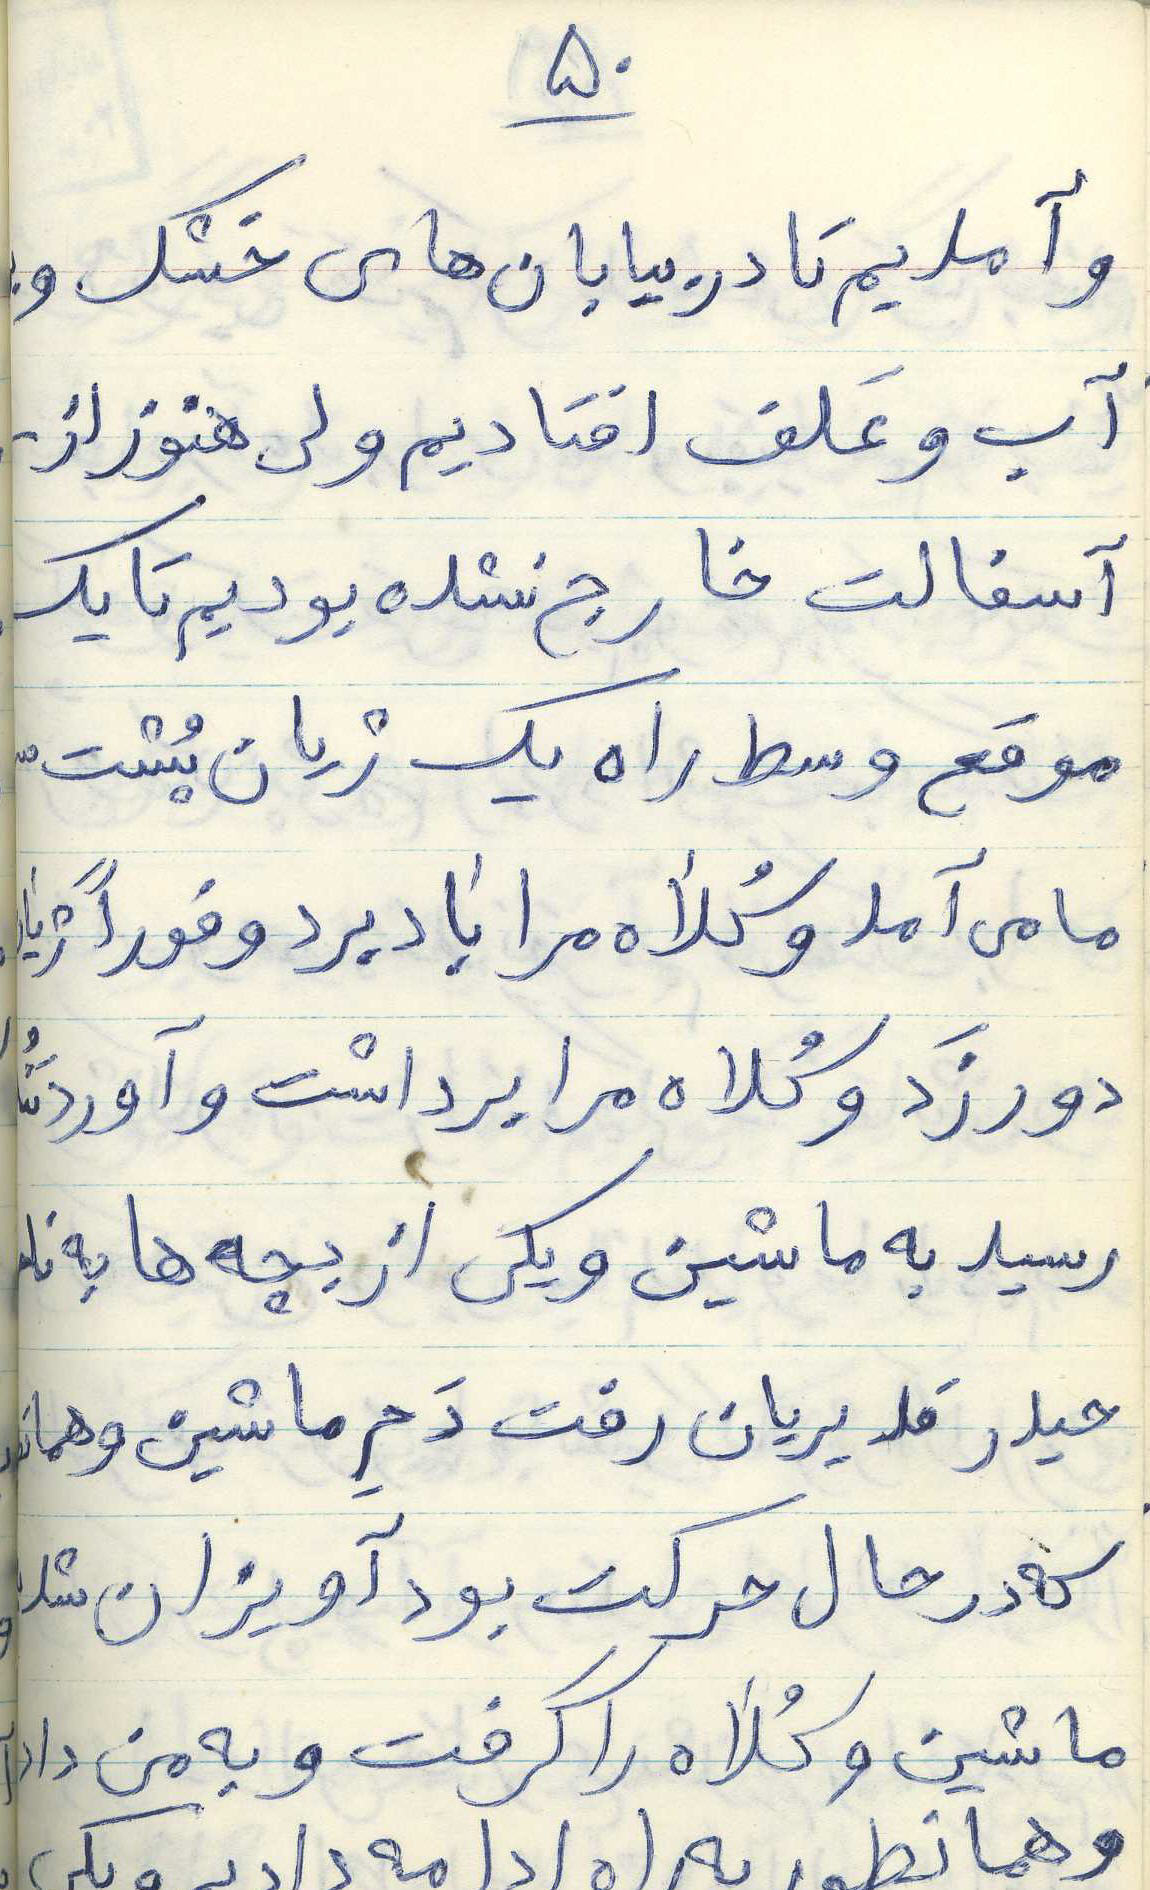 ۵۰
وآمدیم تا در بیابان‌های خشک و
آب و عَلف افتادیم ولی هنوز از
آسفالت خارج نشده بودیم تا یک
موقع وسط راه یک ژیان پُشت
ما می آمد و کُلاه مرا باد برد و فوراً ژیان
دور زَد و کُلاه مرا برداشت و آورد تا
رسید به ماشین و یکی از بچه ها به نام
حیدر قدیریان رفت دَمِ ماشین و همانطور
که در حال حرکت بود آویزان شد
ماشین و کُلاه را گرفت و به من داد
و همانطور به راه ادامه دادیم و یکی